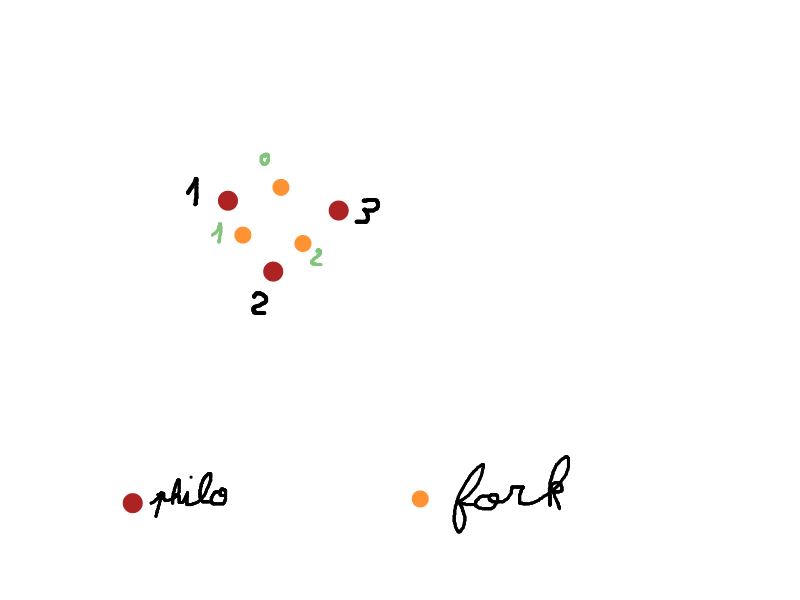 0
1
3
1
2
2
philo
fork